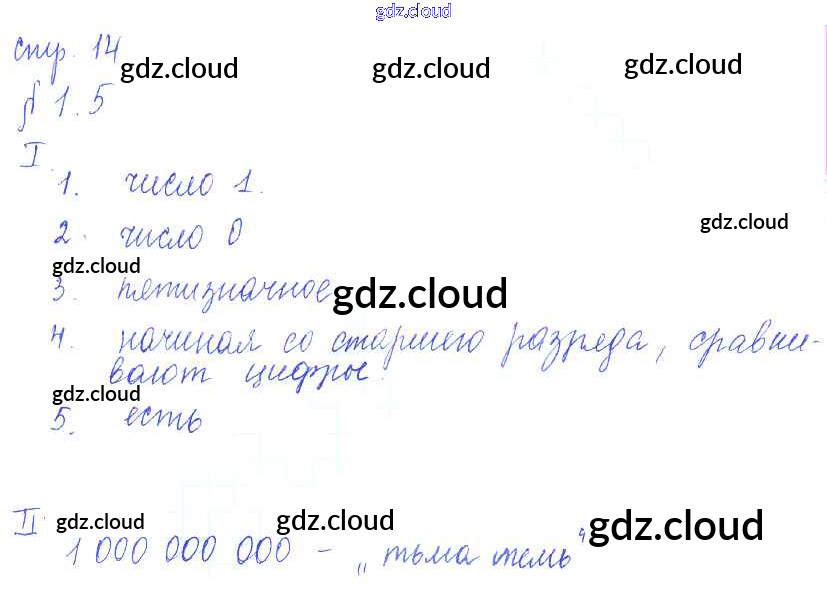 gdz.cloud
стр. 14
gdz.cloud gdz.cloud gdz.cloud
§ 1.5
I
1. число 1.
2. число 0 gdz.cloud
gdz.cloud
3. пятизначное gdz.cloud
4. начиная со старшего разряда, сравни-
вают цифры.
gdz.cloud
5. есть
II gdz.cloud gdz.cloud gdz.cloud
1 000 000 000 - „тьма тем“